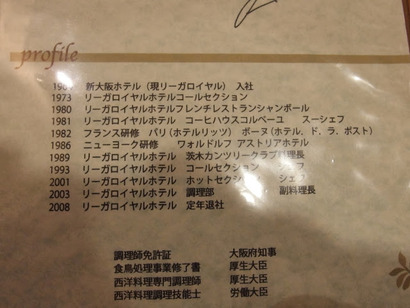 profile
新大阪ホテル（現リーガロイヤル） 入社
1973 リーガロイヤルホテルコールセクション
1980 リーガロイヤルホテルフレンチレストランシャンボール
1981 リーガロイヤルホテル コーヒハウスコルベーユ スーシェフ
1982 フランス研修 パリ（ホテルリッツ） ボーヌ（ホテル、ド、ラ、ポスト）
1986 ニューヨーク研修 ウォルドルフ アストリアホテル
1989 リーガロイヤルホテル 茨木カンツリークラブ料理長
1993 リーガロイヤルホテル コールセクション
2001 リーガロイヤルホテル ホットセクション シェフ
2003 リーガロイヤルホテル 調理部 副料理長
2008 リーガロイヤルホテル 定年退社
調理師免許証 大阪府知事
食鳥処理事業修了書 厚生大臣
西洋料理専門調理師 厚生大臣
西洋料理調理技能士 労働大臣